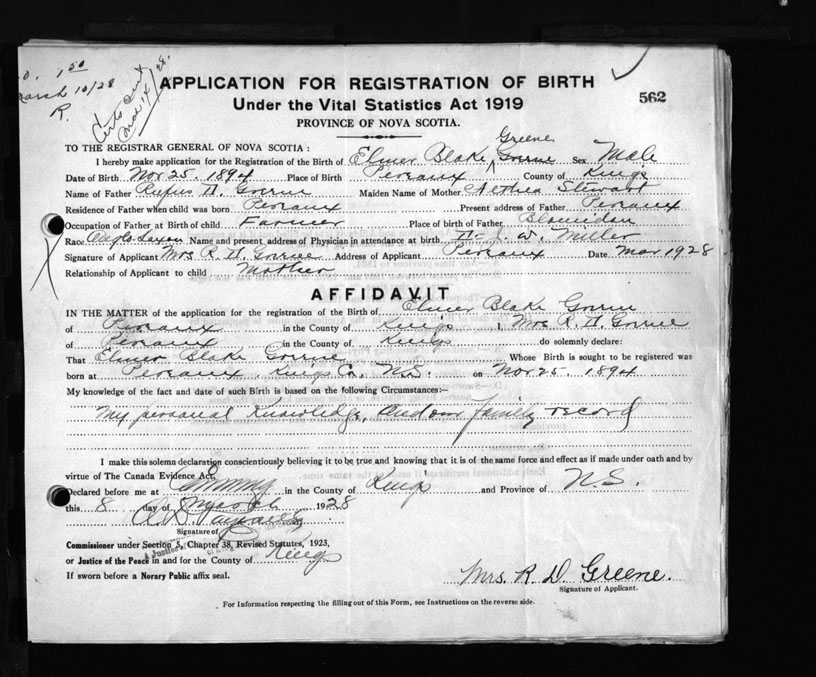 1.50
March 10/28
R.
Certs Sent
Mch 14/28.
APPLICATION FOR REGISTRATION OF BIRTH
562
Under the Vital Statistics Act 1919
PROVINCE OF NOVA SCOTIA.
TO THE REGISTRAR GENERAL OF NOVA SCOTIA:
Greene
I hereby make application for the Registration of the Birth of Elmer Blake Sex Male
Date of Birth Nov 25. 1894 Place of Birth Pereaux County of Kings
Name of Father Rufus D. Maiden Name of Mother Stewart
Residence of Father when child was born Pereaux Present address of Father Pereaux
Occupation of Father at Birth of child Farmer Place of birth of Father Blomidon
Race Anglo Saxon Name and present address of Physician in attendance at birth W. Miller
Signature of Applicant Mrs R. D. Address of Applicant Pereaux Date Mar 1928
Relationship of Applicant to child Mother
AFFIDAVIT
IN THE MATTER of the application for the registration of the Birth of Elmer Blake
of Pereaux in the County of Kings I, Mrs R. D.
of Pereaux in the County of Kings do solemnly declare:
That Elmer Blake Whose Birth is sought to be registered was
born at Pereaux Kings Co. N.S. on Nov 25. 1894
My knowledge of the fact and date of such Birth is based on the following Circumstances:—
My personal Knowledge, and our family record
I make this solemn declaration conscientiously believing it to be true and knowing that it is of the same force and effect as if made under oath and by
virtue of The Canada Evidence Act.
Declared before me at in the County of Kings and Province of N.S.
this 8 day of March 1928
Signature of
Commissioner under Section 5, Chapter 38, Revised Statutes, 1923,
or Justice of the Peace in and for the County of Kings
If sworn before a Norary Public affix seal.
Mrs. R D. Greene.
Signature of Applicant.
For Information respecting the filling out of this Form, see Instructions on the reverse side.